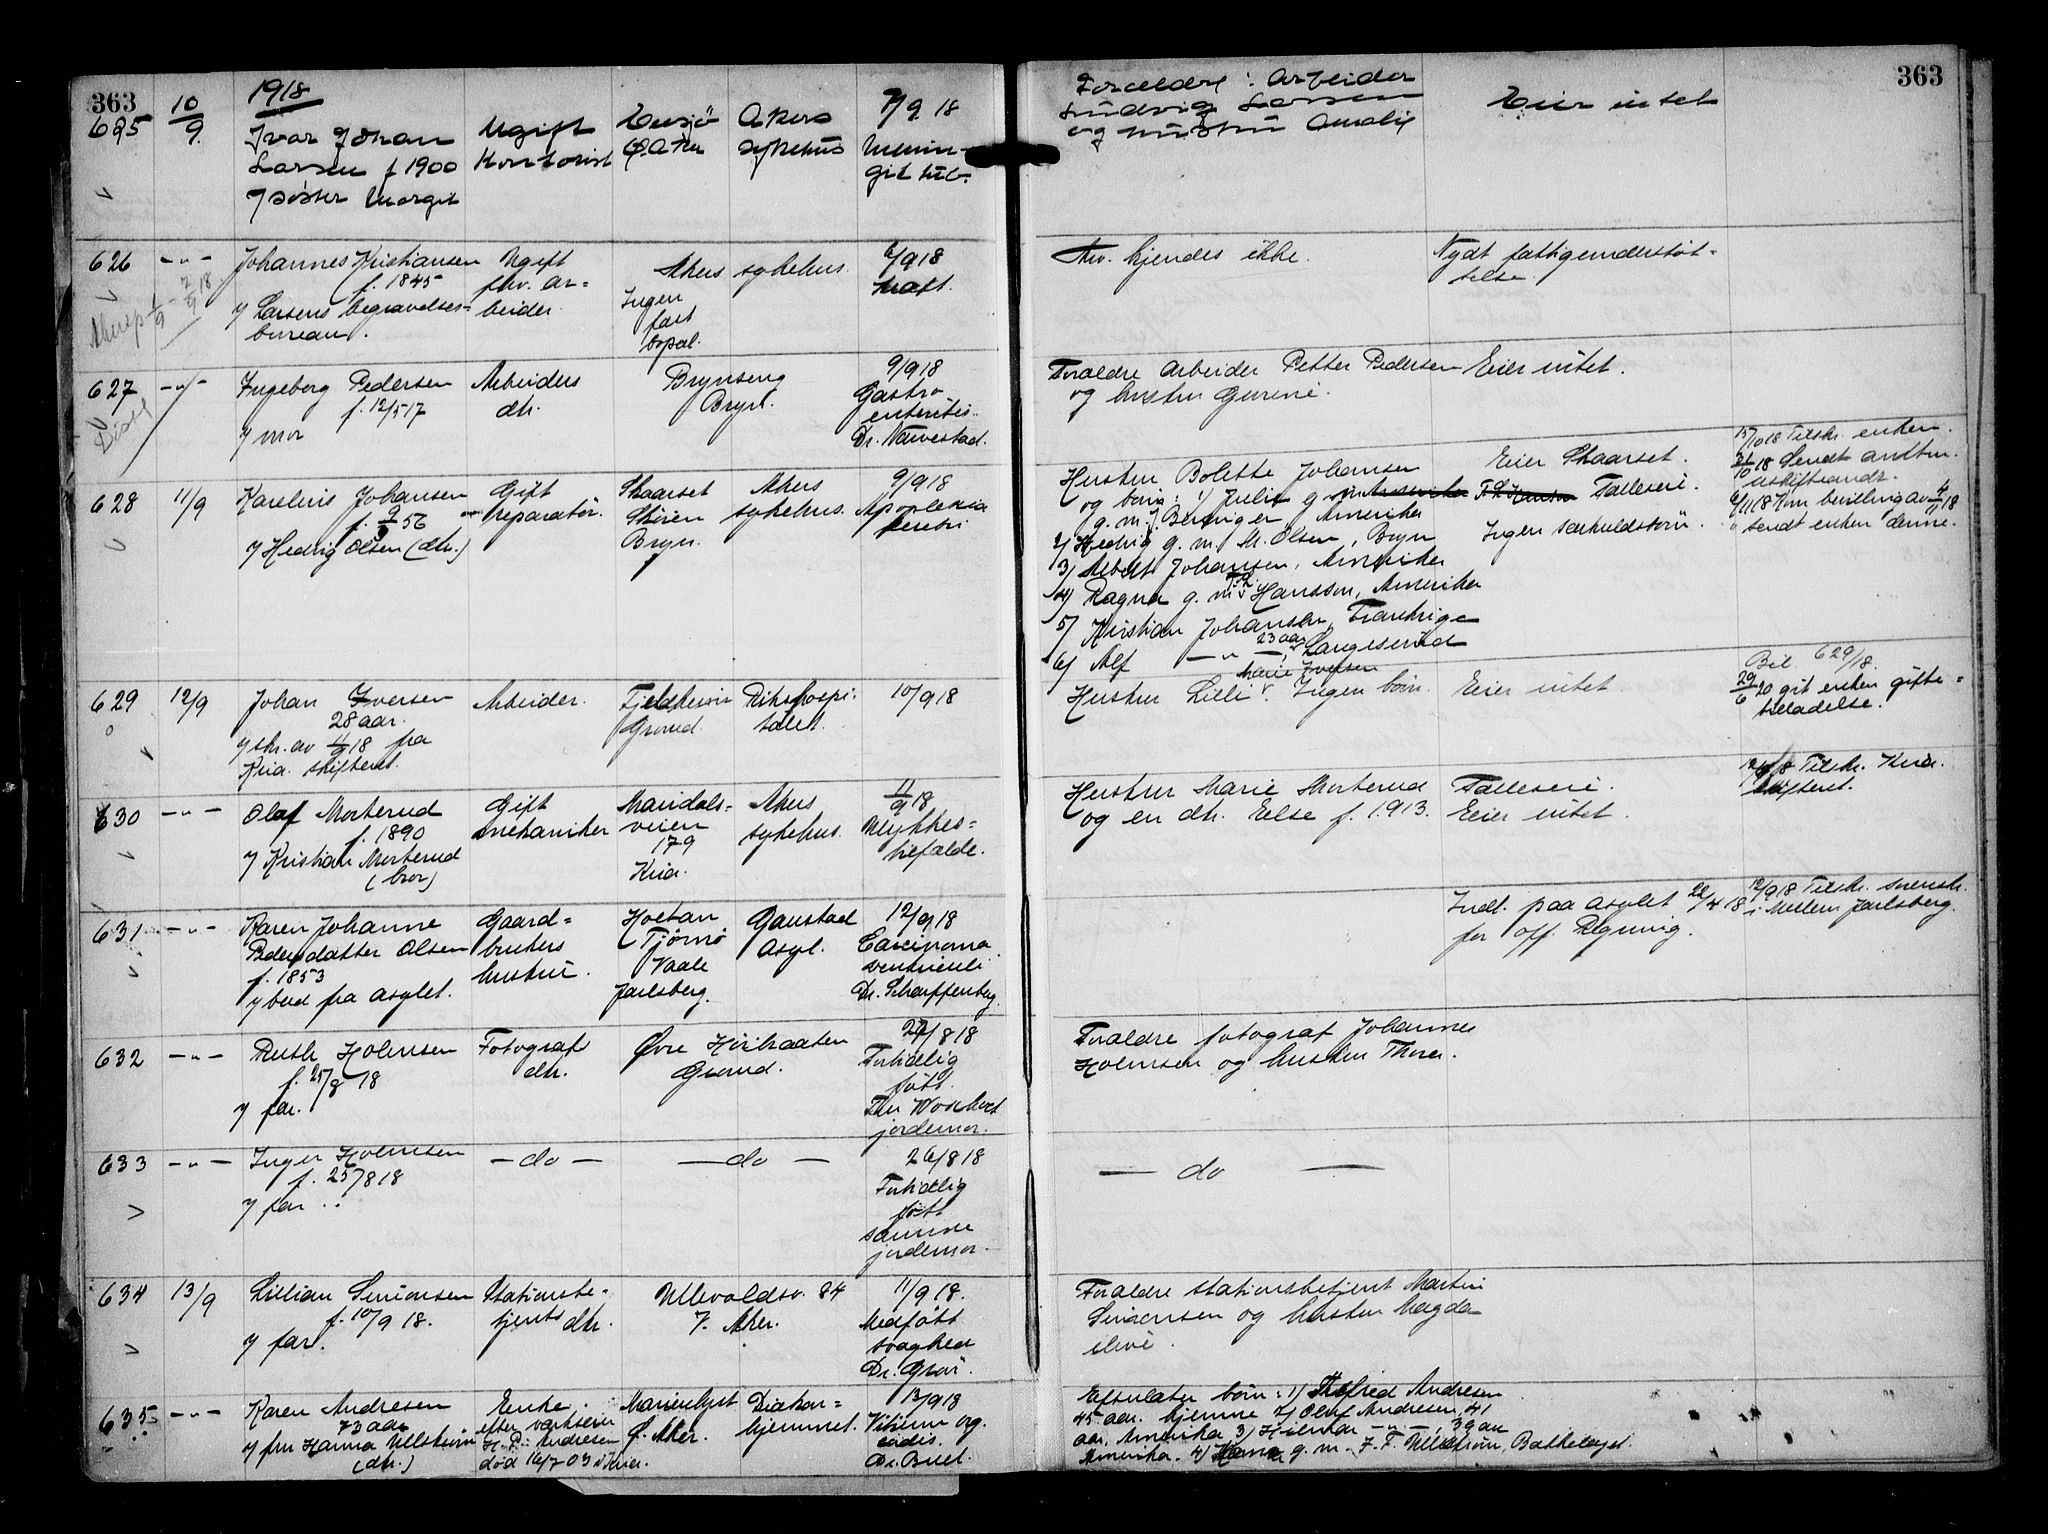 363
363
1918
625
10/9
Ivar Johan
Larsen f 1900
γ søster Margit
Ugift
Kontorist
Ø. Aker
Akers
sykehus
7/9 18
Menin-
git tub.
Forældre: Arbeider
Ludvig Larsen
og hustru Amalie
Eier intet
626
— " —
Johannes Kristiansen
f. 1845
γ Larsens begravelses=
bureau.
Ugift
fhv. ar=
beider.
Akers sykehus.
Ingen
fast
bopæl.
6/9 18
Arv. kjendes ikke.
Nydt fattigunderstøt-
telse.
627
— " —
Ingeborg Pedersen
f. 12/5 17
γ mor
Arbeiders
dtr.
Brynseng
Bryn.
9/9 18
Gastro
enteritis.
Dr. Nævestad.
Forældre Arbeider Petter Pedersen
og hustru Gurine.
Eier intet.
628
11/9
Karelius Johansen
f. 9/3 56
γ Hedvig Olsen (dtr.)
Gift
reparatør.
Skaarset
Skøien
Bryn.
Akers
sykehus.
9/9 18
Apoplexia
cerebri
Hustru Bolette Johansen
og børn: 1) Julie g
g. m. J. Berringer, Amerika
2) Hedvig g. m. M. Olsen, Bryn
3) Albert Johansen, Amerika
4) Ragna g. m. F. R. Hansson, Amerika
5) Kristian Johansen, Frankrige
6) Alf — " — 23 aar, Langeserud
Eier Skaarset.
Fælleseie.
Ingen særkuldsbørn.
15/10 18 Tilskr. enken.
21/10 18 Sendt andm.
uskifteandr.
6/11 18 Kom bevilling av 4/11 18
" sendt enken denne.
629
12/9
Johan Iversen
28 aar.
γ skr. av 11/9 18 fra
Kria. skifteret.
Arbeider.
Grorud.
Rikshospi=
talet.
10/9 18
Marie Iversen
Hustru Lilli v. Ingen børn.
Eier intet.
Bil. 629/18.
29/6 20 git enken gifte=
tilladelse.
630
— " —
Olaf Morterud
f. 1890
γ Kristian Morterud
(bror)
Gift
mekaniker
Maridals=
veien
179
Kria.
Akers
sykehus.
11/9 18
Ulykkes=
tilfælde.
Hustru Marie Morterud
og en dtr. Else f. 1913.
Fælleseie.
Eier intet.
12/9 18 Tilskr. Kria.
skifteret.
631
— " —
Karen Johanne
Pedersdatter Olsen
f. 1853
γ bud fra asylet.
Gaard=
brukers
hustru.
Hoetan
Tjømø
Vaale
Jarlsberg.
Gaustad
Asyl.
12/9 18
Carcinoma
ventriculi
Dr. Scharffenberg.
Indl. paa asylet 22/4 18
for off. Regning.
12/9 18 Tilskr. sorensk.
i Mellem Jarlsberg.
632
— " —
Ruth Holmsen
f. 25/8 18
γ far.
Fotografs
dtr.
Øvre Høibraaten
Grorud.
26/8 18
Fortidlig
født.
jordemor.
Forældre fotograf Johannes
Holmsen og hustru Thora.
633
— " —
Inger Holmsen
f. 25/8 18
γ far
— do —
— do —
26/8 18
Fortidlig
født
samme
jordemor.
— do —
634
13/9
Lillian Simonsen
f. 10/9 18.
γ far.
Stationsbe=
tjents dtr.
Ullevoldsv. 84
V. Aker.
11/9 18.
Medfødt
svaghed
Dr. Grøn.
Forældre stationsbetjent Martin
Simonsen og hustru Magda
635
— " —
Karen Andresen
73 aar
γ fru Hanna Ullstrøm
(dtr.)
Enke
efter værkseier
H. P. Andresen
død 16/7 03 i Kria.
Marienlyst
Ø. Aker.
Diakon=
hjemmet.
13/9 18
Vitium org.
cordis.
Dr. Buel.
Efterlater børn: 1) Thofred Andresen
45 aar. hjemme 2) Oluf Andresen, 41
aar, Amerika 3) Hilmar — " —, 39 aar
Amerika. 4) Hanna g. m. F. F. Ullstrøm, Bækkelaget.